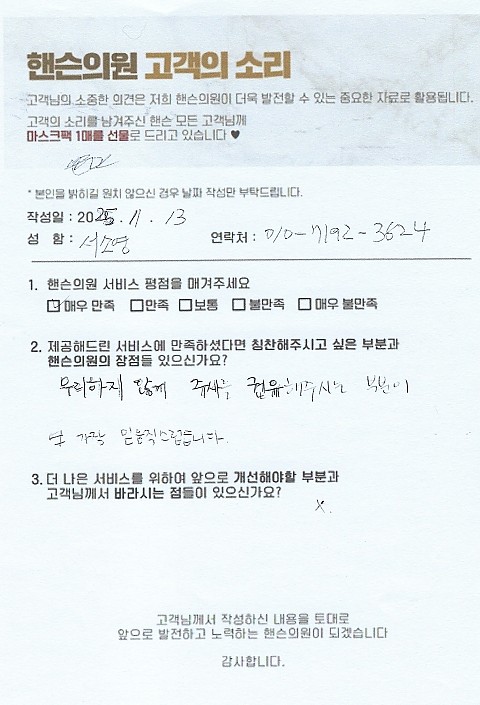 핸슨의원 고객의 소리
고객님의 소중한 의견은 저희 핸슨의원이 더욱 발전할 수 있는 중요한 자료로 활용됩니다.
고객의 소리를 남겨주신 핸슨 모든 고객님께
마스크팩 1매를 선물로 드리고 있습니다 ♥
* 본인을 밝히길 원치 않으신 경우 날짜 작성만 부탁드립니다.
작성일 : 2025. 11. 13
성 함 : 서소영 연락처 : 010-7192-3624
1. 핸슨의원 서비스 평점을 매겨주세요
☑매우 만족 □만족 □보통 □불만족 □매우 불만족
2. 제공해드린 서비스에 만족하셨다면 칭찬해주시고 싶은 부분과
핸슨의원의 장점들 있으신가요?
무리하지 않게 주사를 권유해주시는 부분이
가장 믿음직스럽습니다.
3. 더 나은 서비스를 위하여 앞으로 개선해야할 부분과
고객님께서 바라시는 점들이 있으신가요?
x.
고객님께서 작성하신 내용을 토대로
앞으로 발전하고 노력하는 핸슨의원이 되겠습니다
감사합니다.